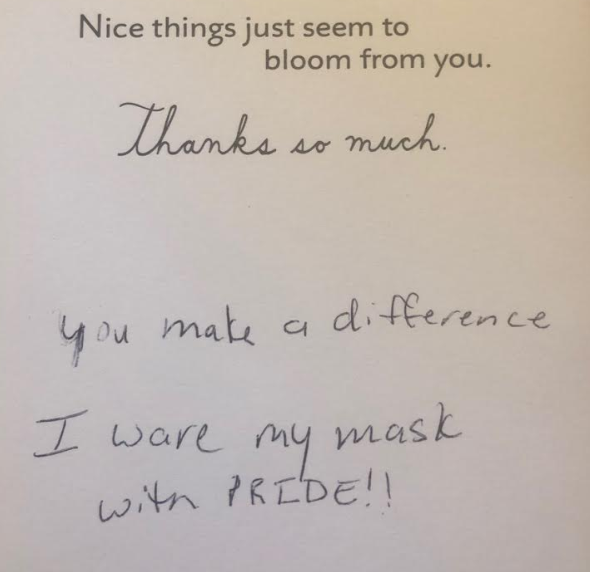 Nice things just seem to
bloom from you.
Thanks so much.
you make a difference
I ware my mask
with PRIDE!!